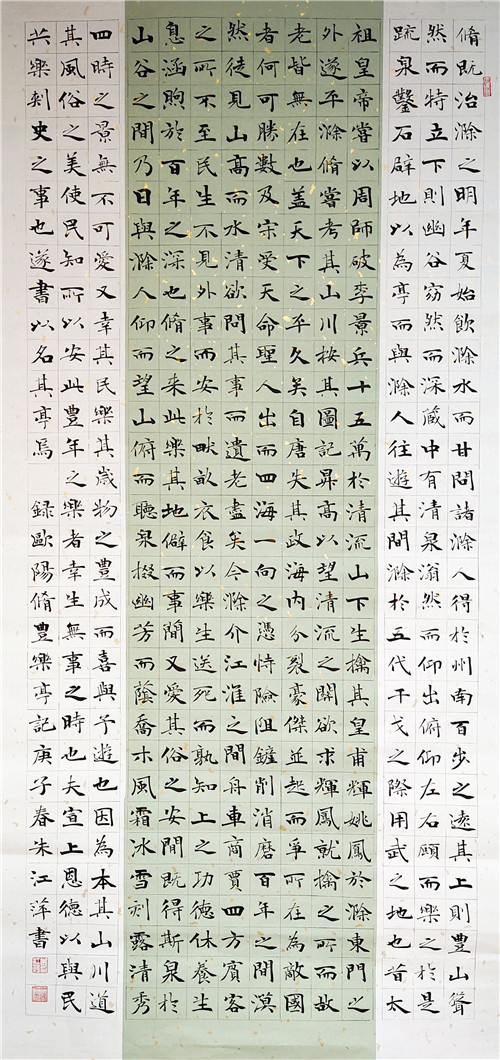 脩既治滁之明年夏始飲滁水而甘問諸滁人得於州南百步之遠其上則豐山聳
然而特立下則幽谷窈然而深藏中有清泉滃然而仰出俯仰左右顧而樂之於是
疏泉鑿石辟地以為亭而與滁人往遊其間滁於五代干戈之際用武之地也昔太
祖皇帝嘗以周師破李景兵十五萬於清流山下生擒其皇甫輝姚鳳於滁東門之
外遂平滁脩嘗考其山川按其圖記昇高以望清流之關欲求輝鳳就擒之所而故
老皆無在也蓋天下之平久矣自唐失其政海內分裂豪傑並起而爭所在為敵國
者何可勝數及宋受天命聖人出而四海一向之憑恃險阻鏟削消磨百年之間漠
然徒見山高而水清欲問其事而遺老盡矣今滁介江淮之間舟車商賈四方賓客
之所不至民生不見外事而安於畎畝衣食以樂生送死而孰知上之功德休養生
息涵煦於百年之深也脩之來此樂其地僻而事簡又愛其俗之安閒既得斯泉於
山谷之間乃日與滁人仰而望山俯而聽泉掇幽芳而蔭喬木風霜冰雪刻露清秀
四時之景無不可愛又幸其民樂其歲物之豐成而喜與予遊也因為本其山川道
其風俗之美使民知所以安此豐年之樂者幸生無事之時也夫宣上恩德以與民
共樂刺史之事也遂書以名其亭焉 錄歐陽脩豐樂亭記庚子春朱江萍書